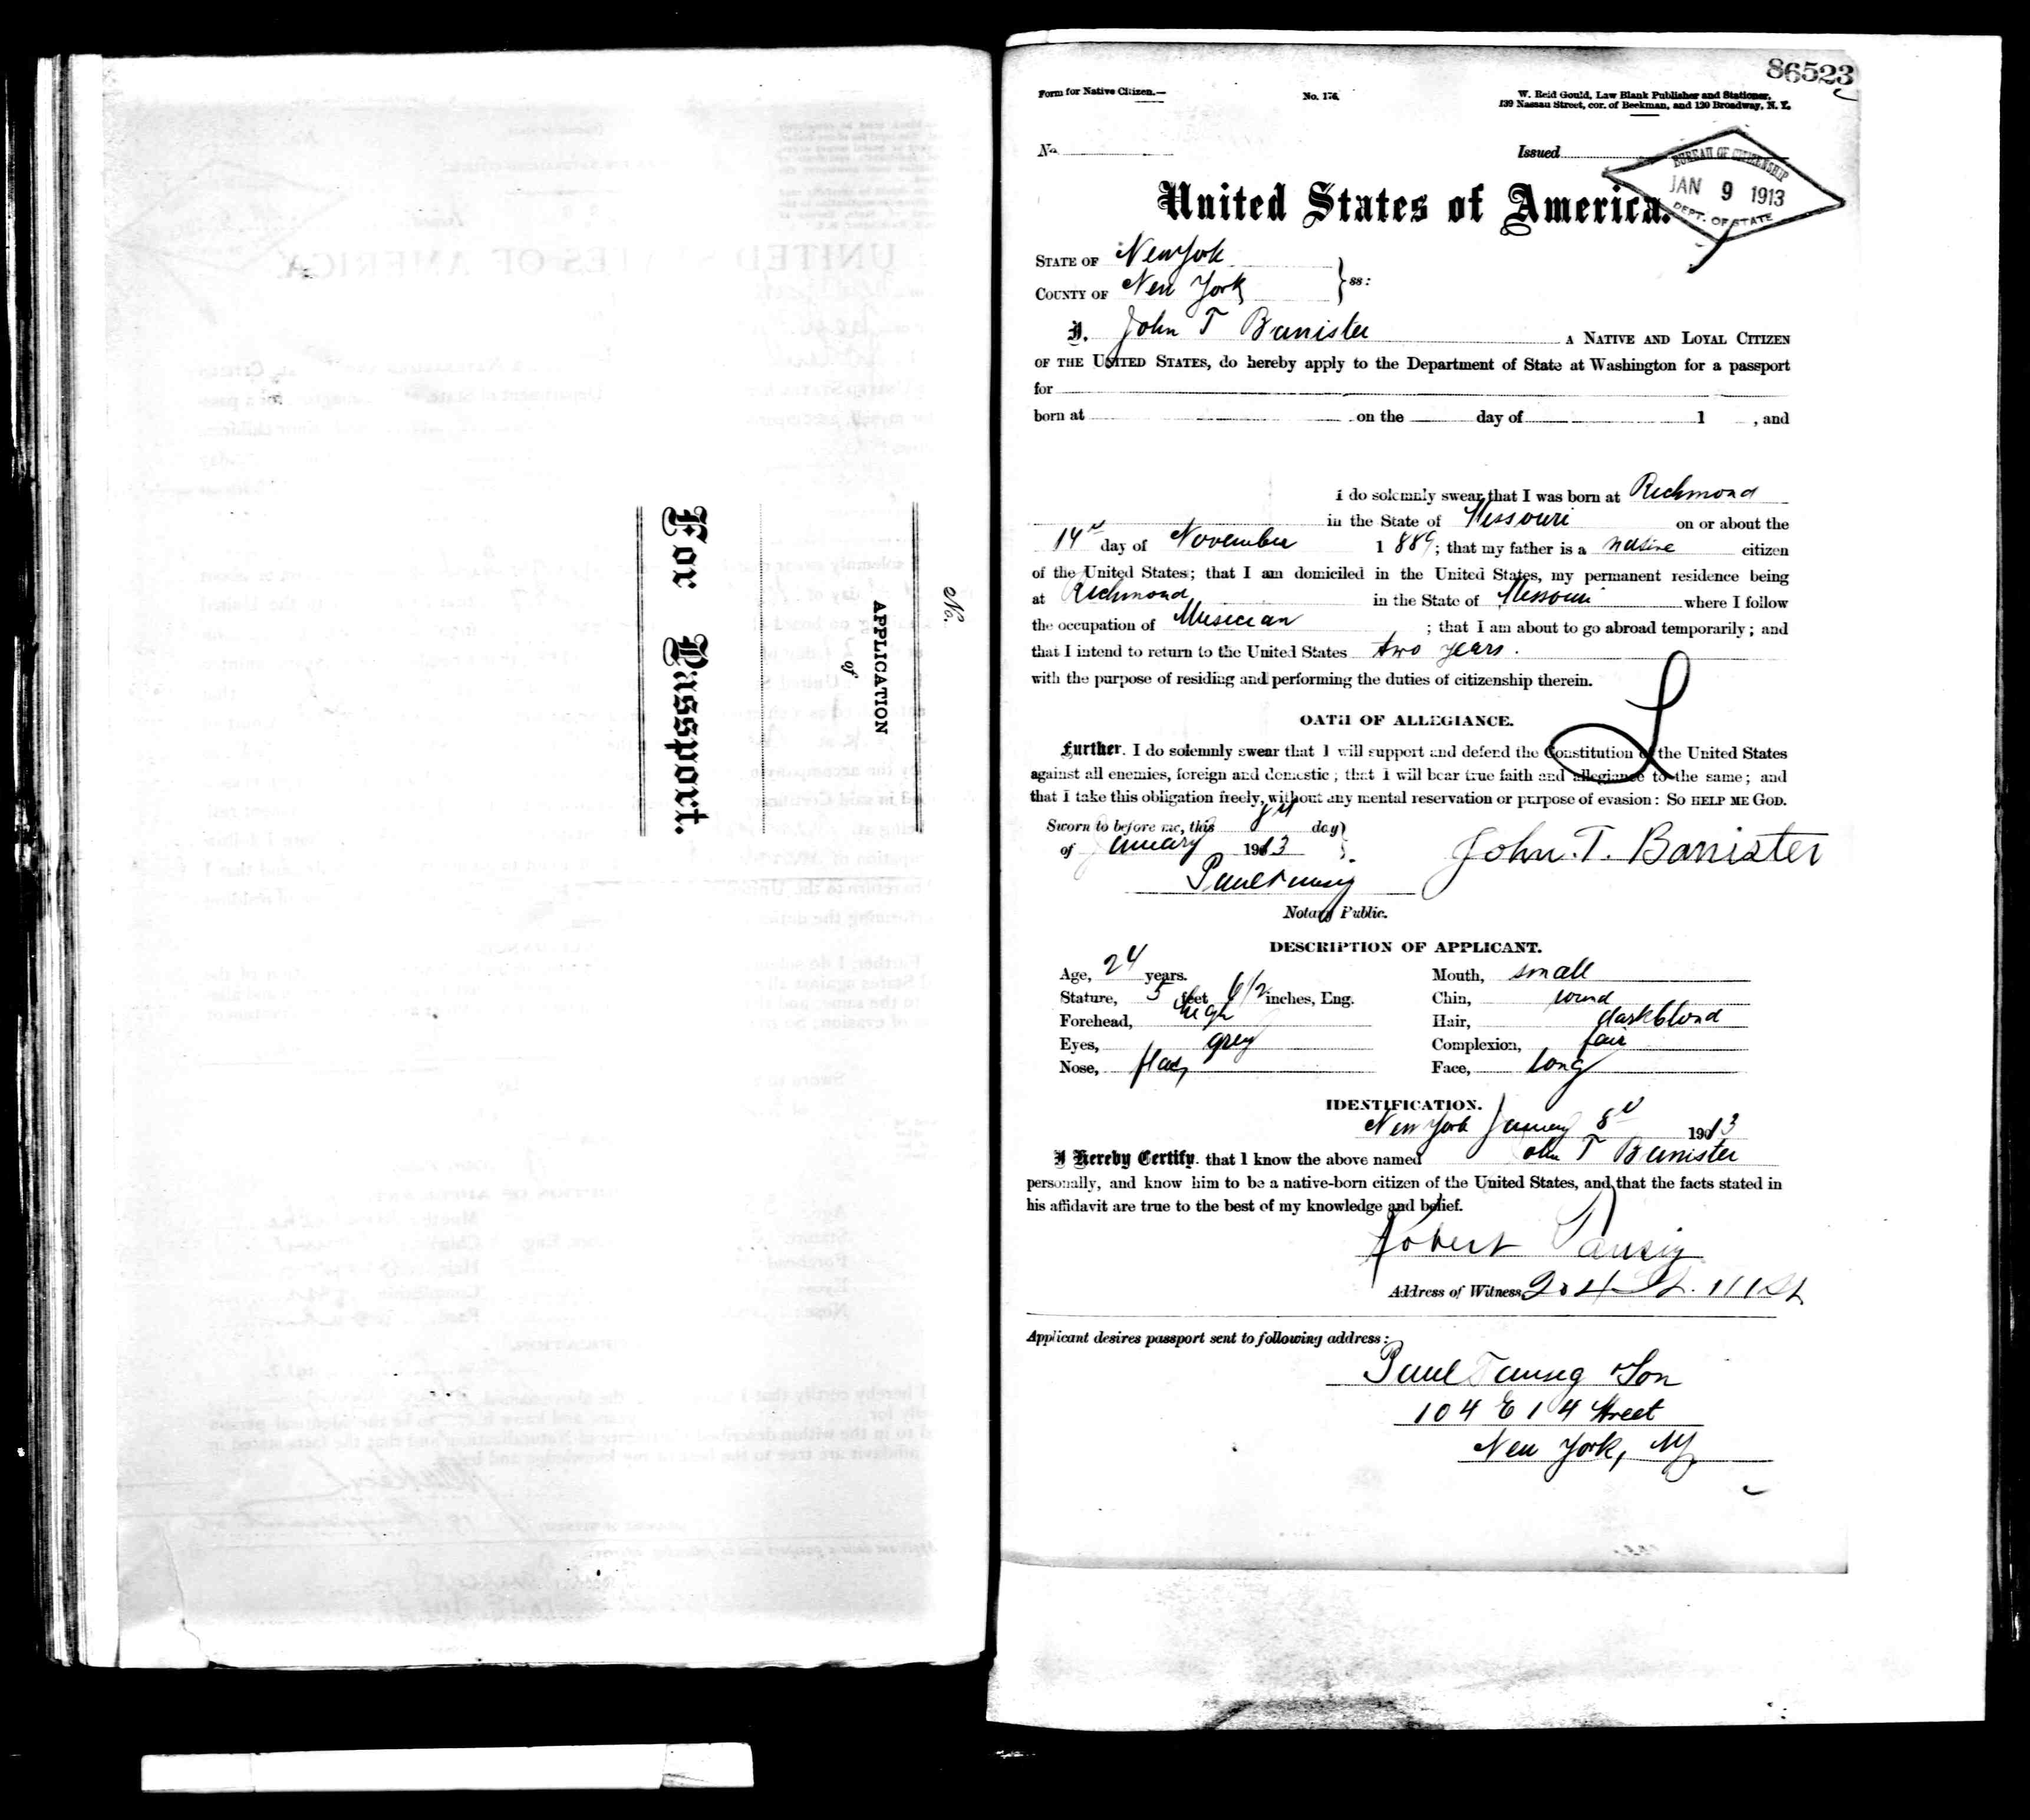 No.
APPLICATION
of
For Passport.
86523
Form for Native Citizen.—
No. 176.
W. Reid Gould, Law Blank Publisher and Stationer,
139 Nassau Street, cor. of Beekman, and 120 Broadway, N. Y.
No.
Issued
BUREAU OF CITIZENSHIP
JAN 9 1913
DEPT. OF STATE
United States of America.
STATE OF New York
COUNTY OF New York } ss:
I, John T Banister A NATIVE AND LOYAL CITIZEN
OF THE UNITED STATES, do hereby apply to the Department of State at Washington for a passport
for
born at on the day of 1 , and
I do solemnly swear that I was born at Richmond
in the State of Missouri on or about the
14th day of November 1 889; that my father is a native citizen
of the United States; that I am domiciled in the United States, my permanent residence being
at Richmond in the State of Missouri where I follow
the occupation of Musician ; that I am about to go abroad temporarily; and
that I intend to return to the United States two years.
with the purpose of residing and performing the duties of citizenship therein.
OATH OF ALLEGIANCE.
Further, I do solemnly swear that I will support and defend the Constitution of the United States
against all enemies, foreign and domestic; that I will bear true faith and allegiance to the same; and
that I take this obligation freely, without any mental reservation or purpose of evasion: SO HELP ME GOD.
Sworn to before me, this 8th day
of January 1913
John. T. Banister
Paul Tausig
Notary Public.
DESCRIPTION OF APPLICANT.
Age, 24 years. Mouth, small
Stature, 5 feet 6 1/2 inches, Eng. Chin, round
Forehead, high Hair, dark blond
Eyes, grey Complexion, fair
Nose, Face, long
IDENTIFICATION.
New York January 8th 1913
I Hereby Certify, that I know the above named John T Banister
personally, and know him to be a native-born citizen of the United States, and that the facts stated in
his affidavit are true to the best of my knowledge and belief.
Robert Tausig
Address of Witness 204 111 St.
Applicant desires passport sent to following address:
Paul Tausig & Son
104 E 14 Street
New York, NY